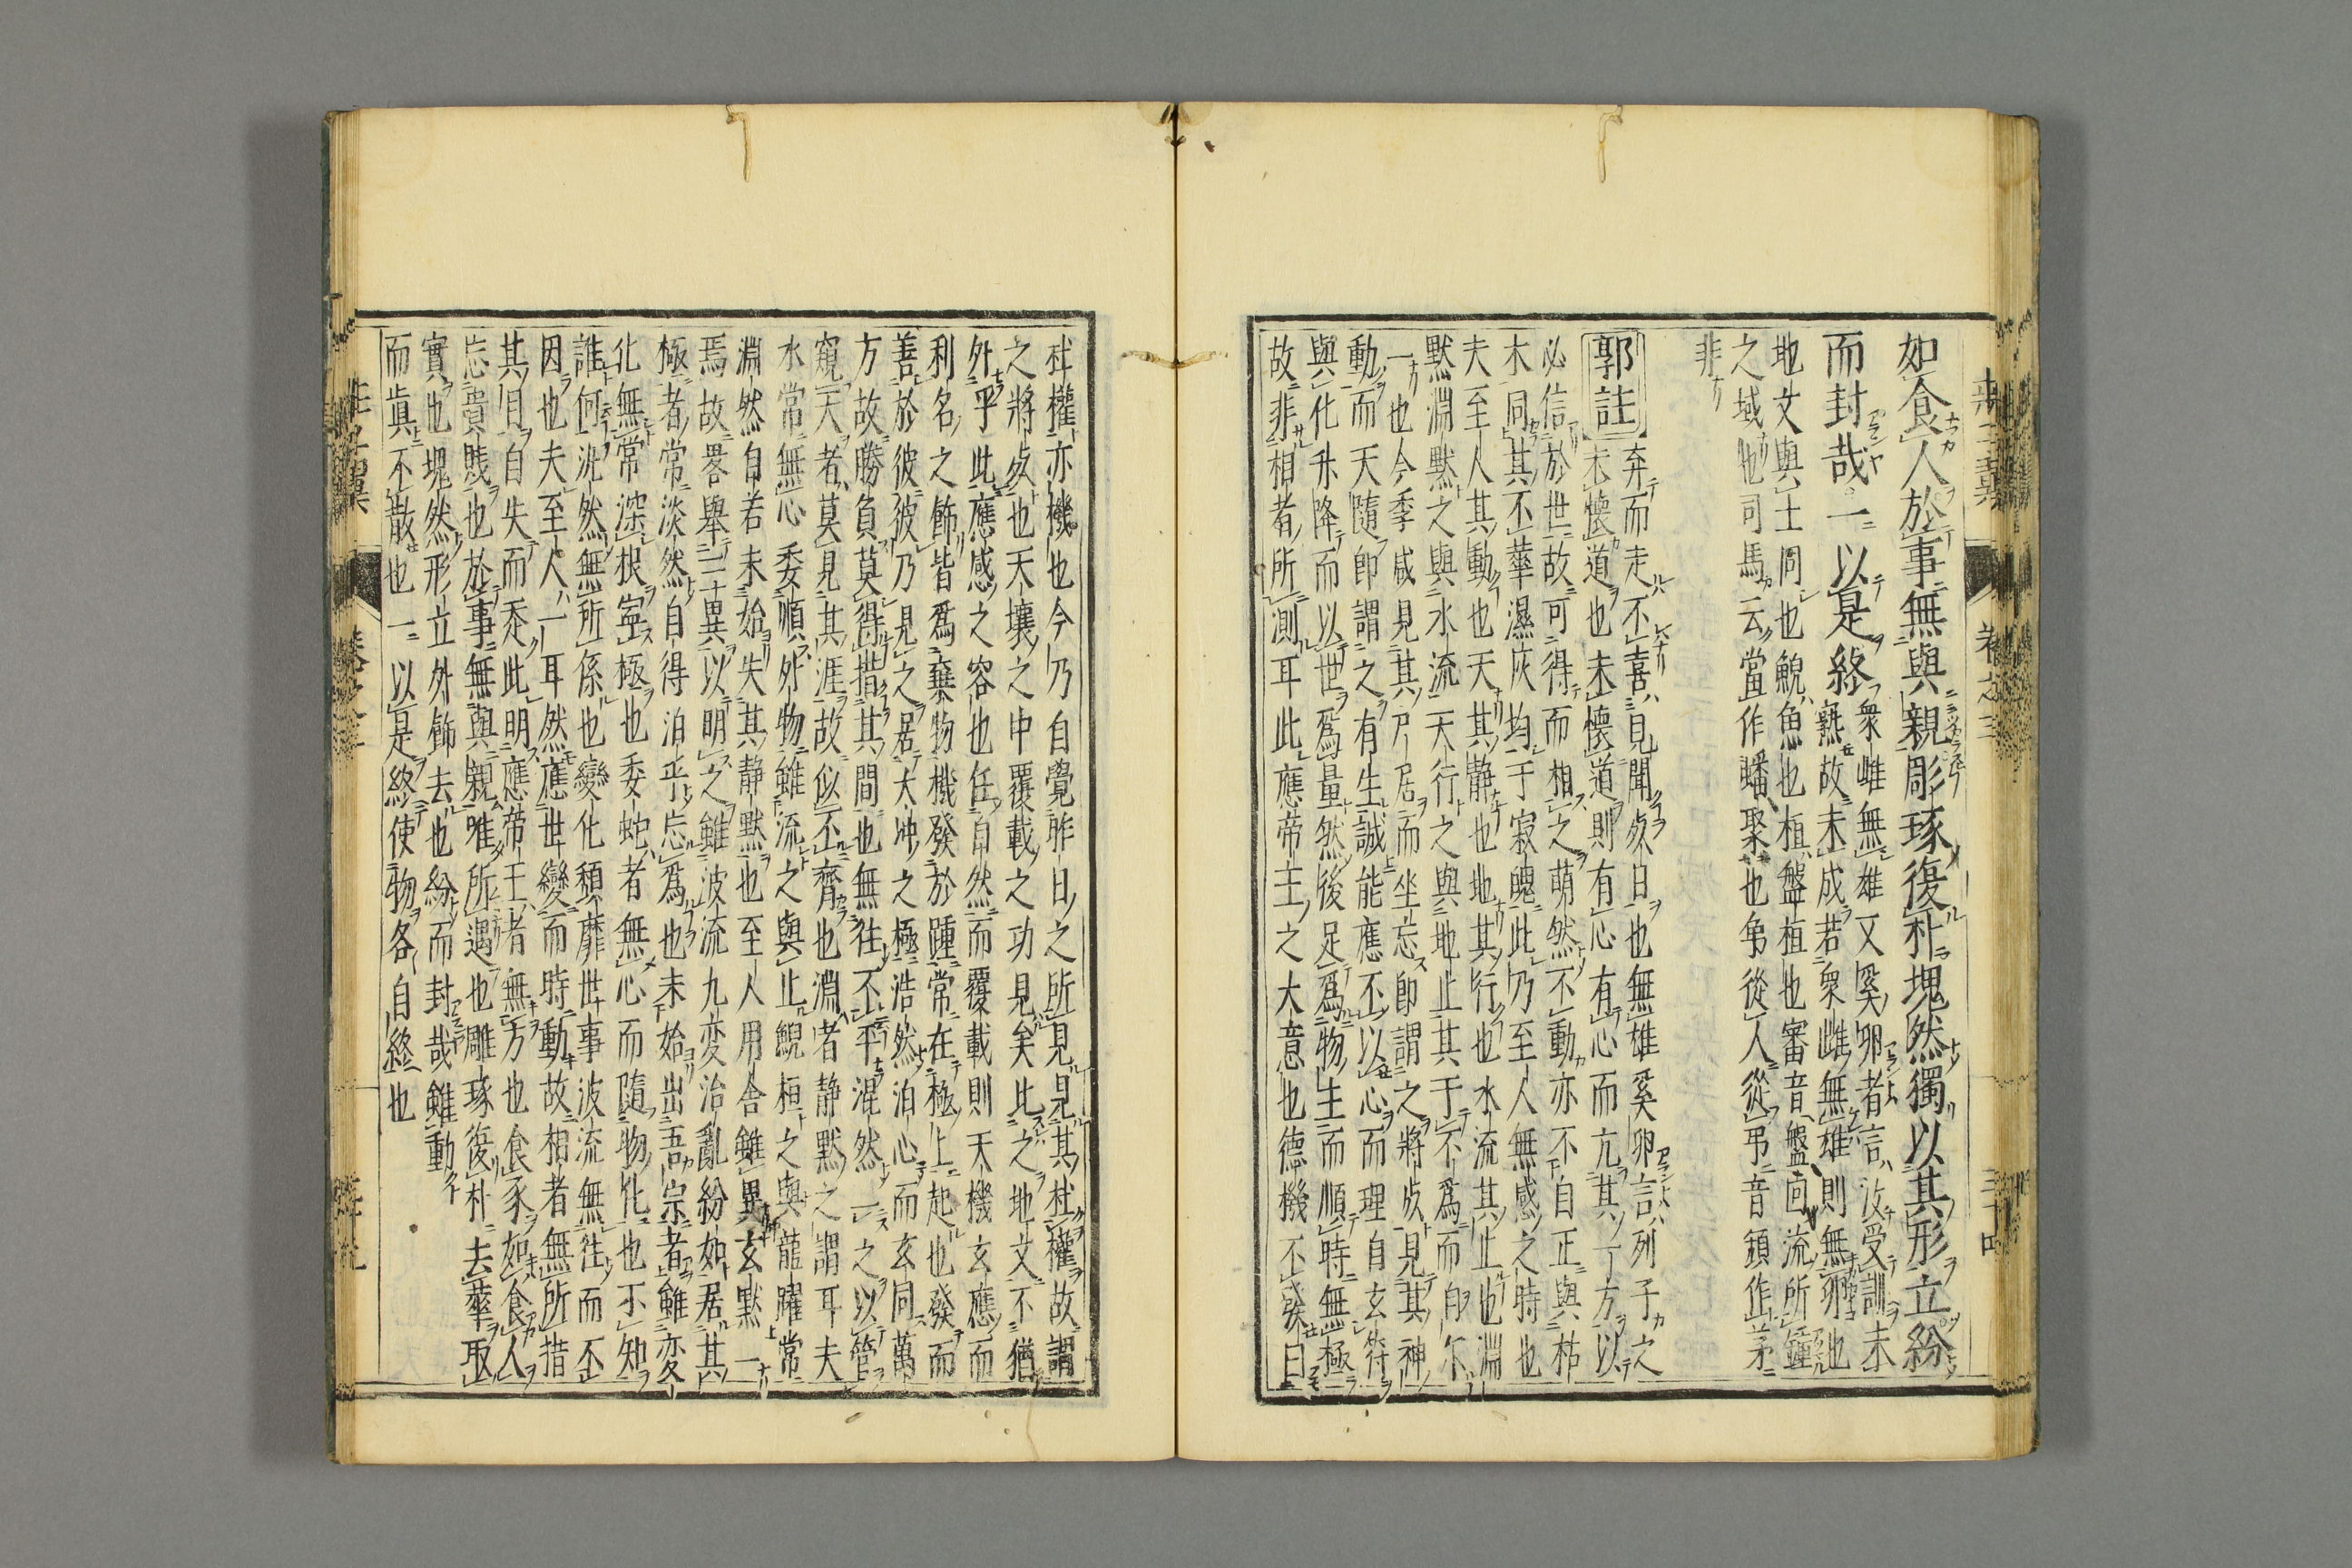 如食人於事無與親彫琢復朴塊然獨以其形立紛
而封哉一以是終
衆雌無雄又奚卵者言汝受訓未
熟故未成若衆雌無雄則無卵也
地文與土同也鯢魚也桓盤桓也審音盤回流所鍾
之域也司馬云當作蟠聚也弟從人從弔音頹作茅
非
郭註
弃而走不喜見聞死日也無雄奚卵言列子之
未懷道也未懷道則有心有心而亢其一方以
必信於世故可得而相之萌然不動亦不自正與枯
木同其不華濕灰均于寂魄此乃至人無感之時也
夫至人其動也天其靜也地其行也水流其止也淵
默淵默之與水流天行之與地止其于不爲而自尓
一也今季咸見其尸居而坐忘即謂之將死見其神
動而天隨即謂之有生誠能應不以心而理自玄符
與化升降而以世爲量然後足爲物主而順時無極
故非相者所測耳此應帝王之大意也德機不發曰
杜權亦機也今乃自覺昨日之所見見其杜權故謂
之將死也天壤之中覆載之功見矣此之地文不猶
外乎此應感之容也任自然而覆載則天機玄應而
利名之飾皆爲棄物機發於踵常在極上起也發而
善於彼彼乃見之居大沖之極浩然泊心而玄同萬
方故勝負莫得措其間也無往不平混然一之以管
窺天者莫見其涯故似不齊也淵者靜默之謂耳夫
水常無心委順外物雖流之與止鯢桓之與龍躍常
淵然自若未始失其靜默也至人用舍雖異玄默一
焉故畧舉三異以明之雖波流九変治亂紛如居其
極者常淡然自得泊乎忘爲也未始出吾宗者雖変
化無常深根寧極也委蛇者無心而隨物化也不知
誰何汎然無所係也變化頹靡世事波流無往而不
因也夫至人一耳然應世變而時動故相者無所措
其目自失而走此明應帝王者無方也食豕如食人
忘貴賤也於事無與親唯所遇也雕琢復朴去華取
實也塊然形立外飾去也紛而封哉雖動
而眞不散也一以是終使物各自終也